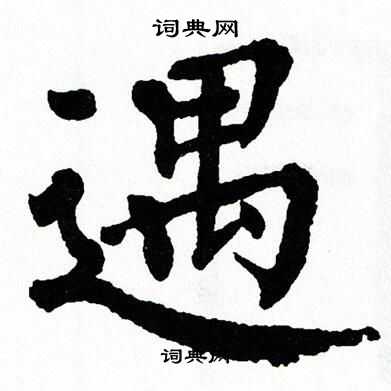 词典网
遇
词典网